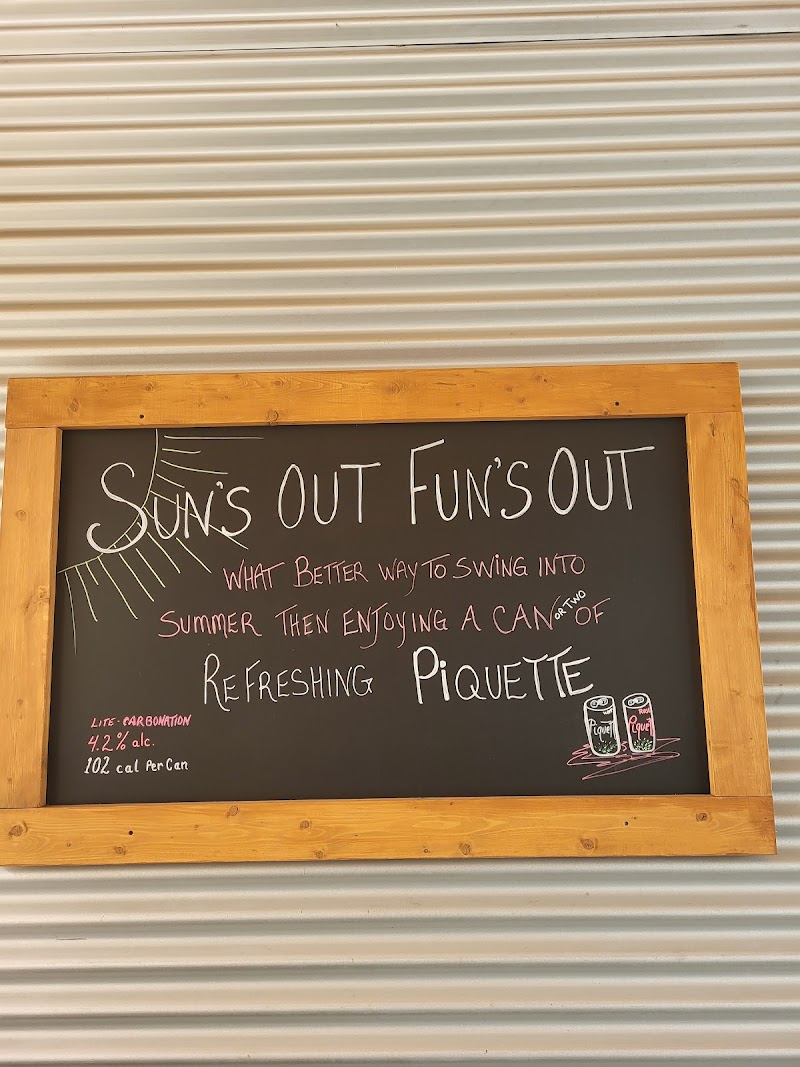 SUN'S OUT FUN'S OUT
WHAT BETTER WAY TO SWING INTO
SUMMER THEN ENJOYING A CAN OR TWO OF
REFRESHING PIQUETTE
LITE-CARBONATION
4.2% alc.
102 cal Per Can
Piquett Piquett